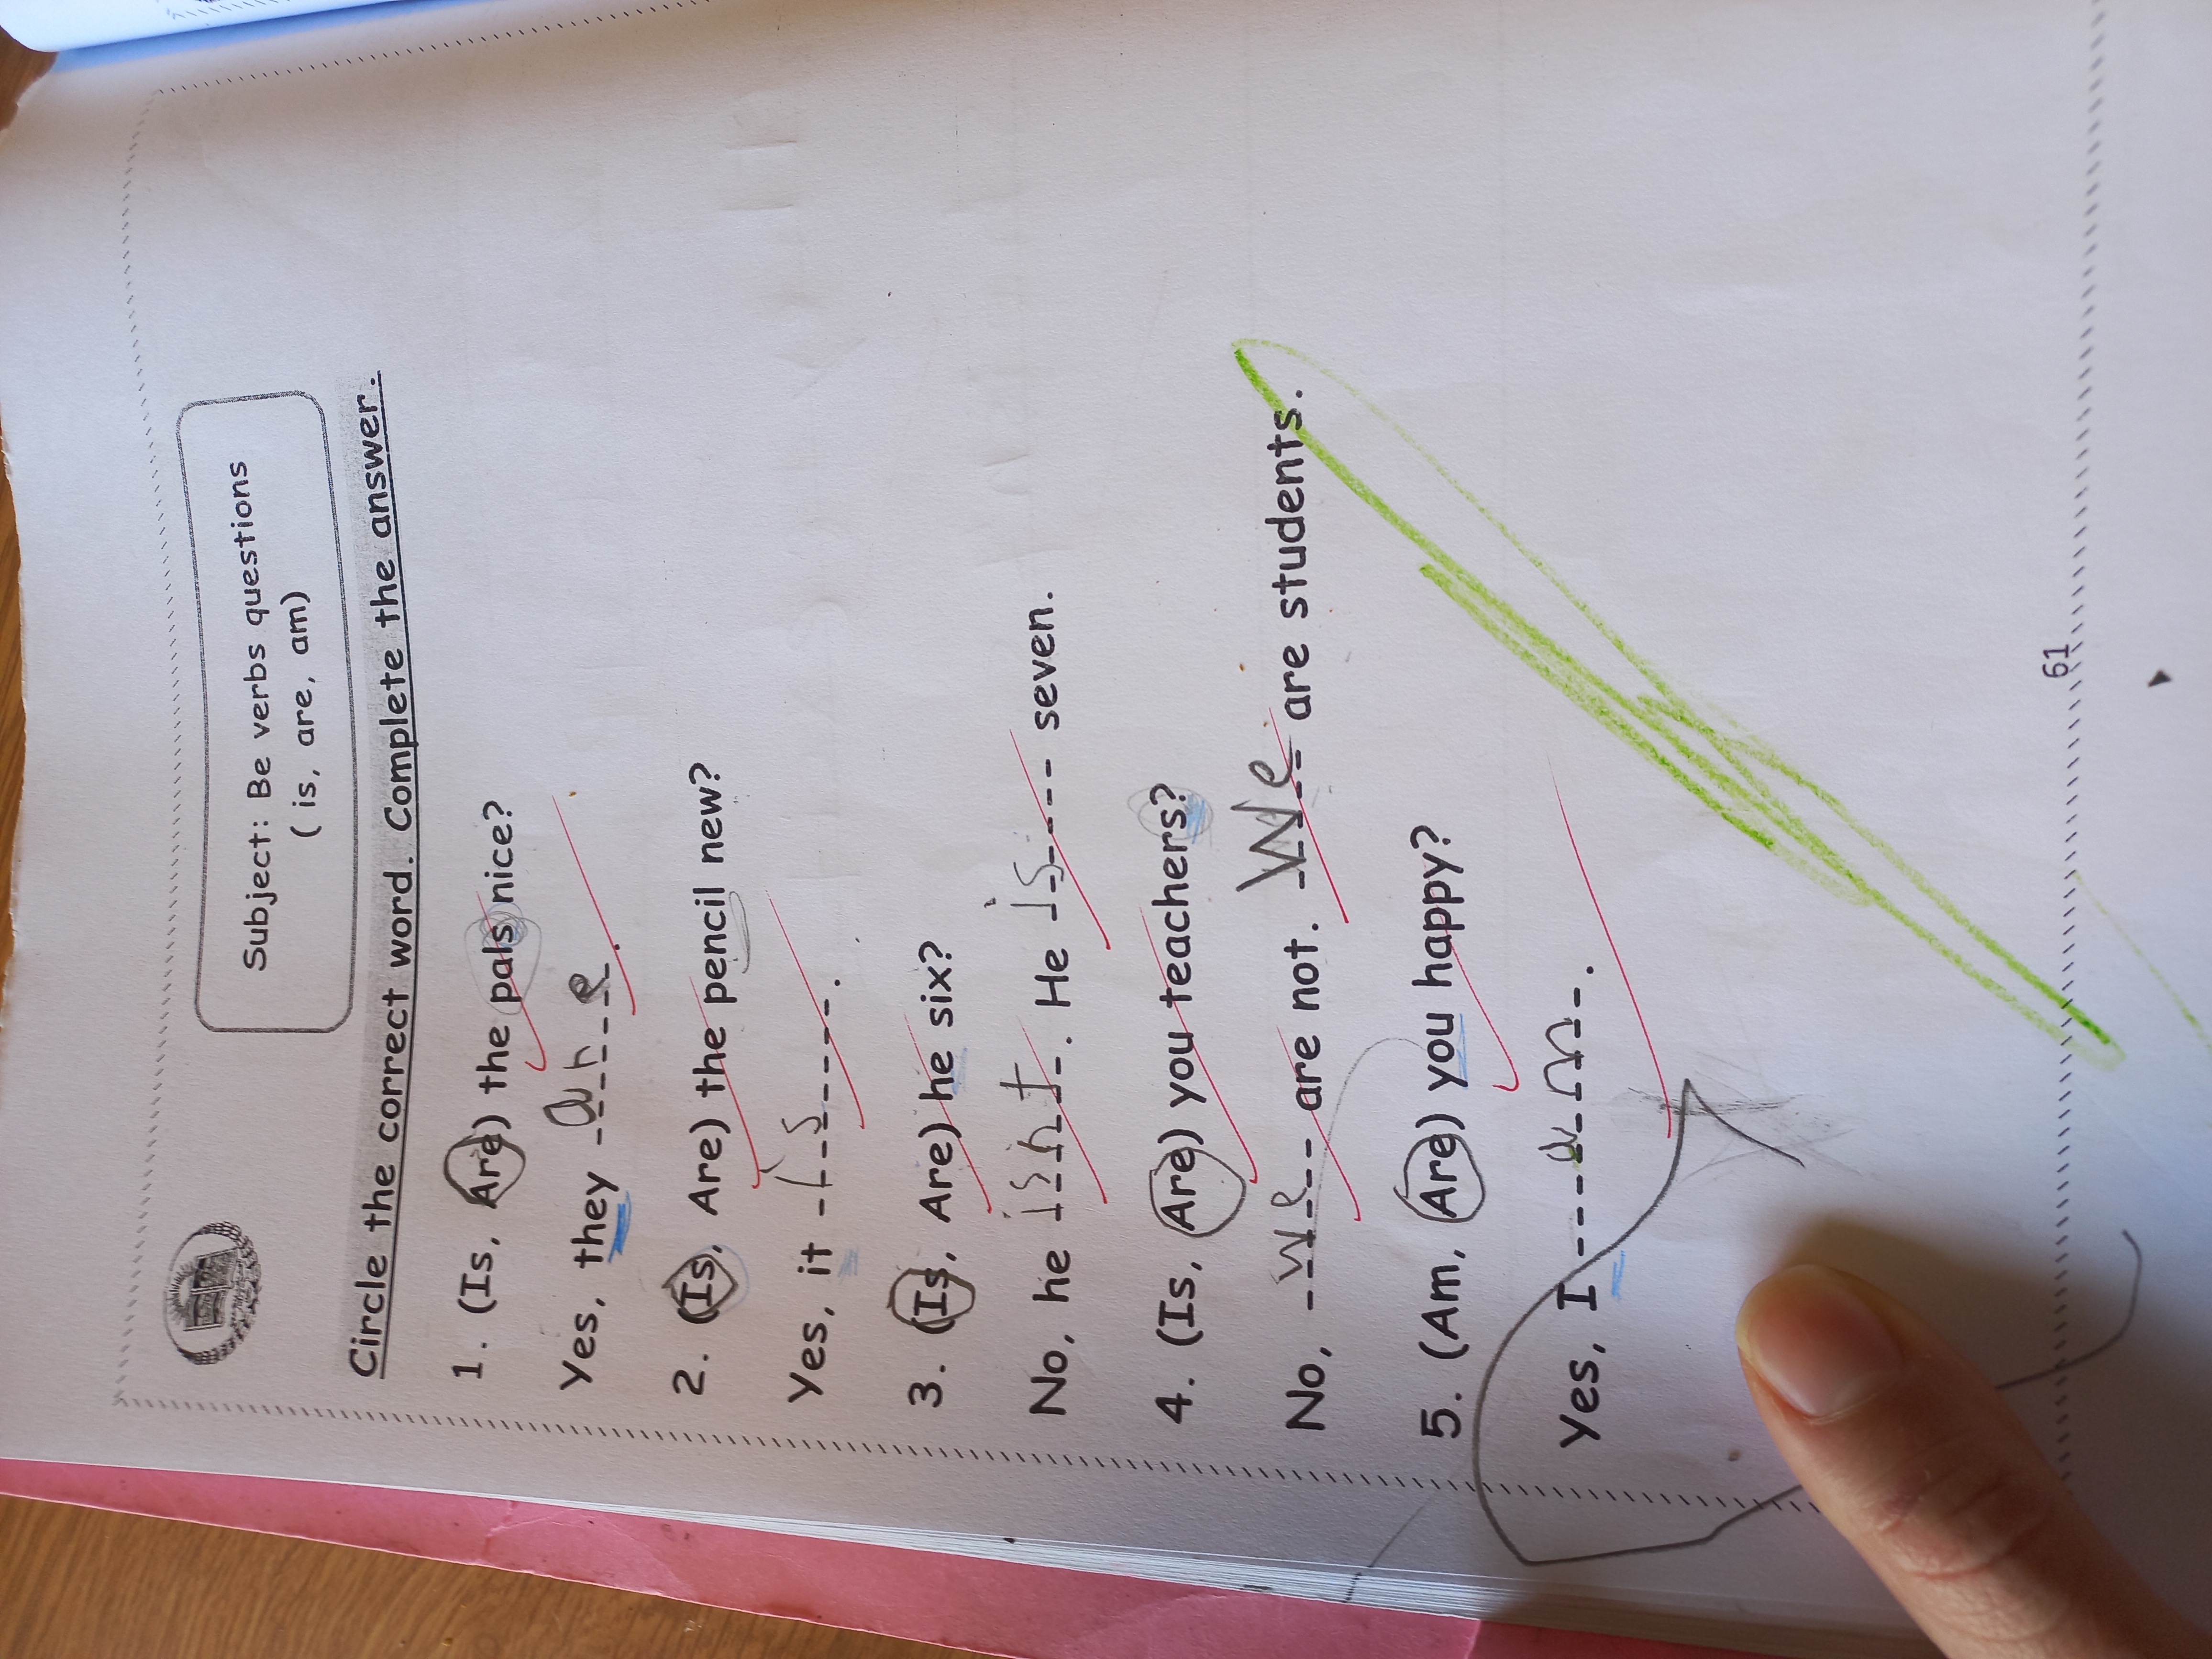 Subject: Be verbs questions
( is, are, am)
Circle the correct word. Complete the answer.
1. (Is, Are) the pals nice?
Yes, they are.
2. (Is, Are) the pencil new?
Yes, it is.
3. (Is, Are) he six?
No, he isnt. He is seven.
4. (Is, Are) you teachers?
No, we are not. We are students.
5. (Am, Are) you happy?
Yes, I am.
61